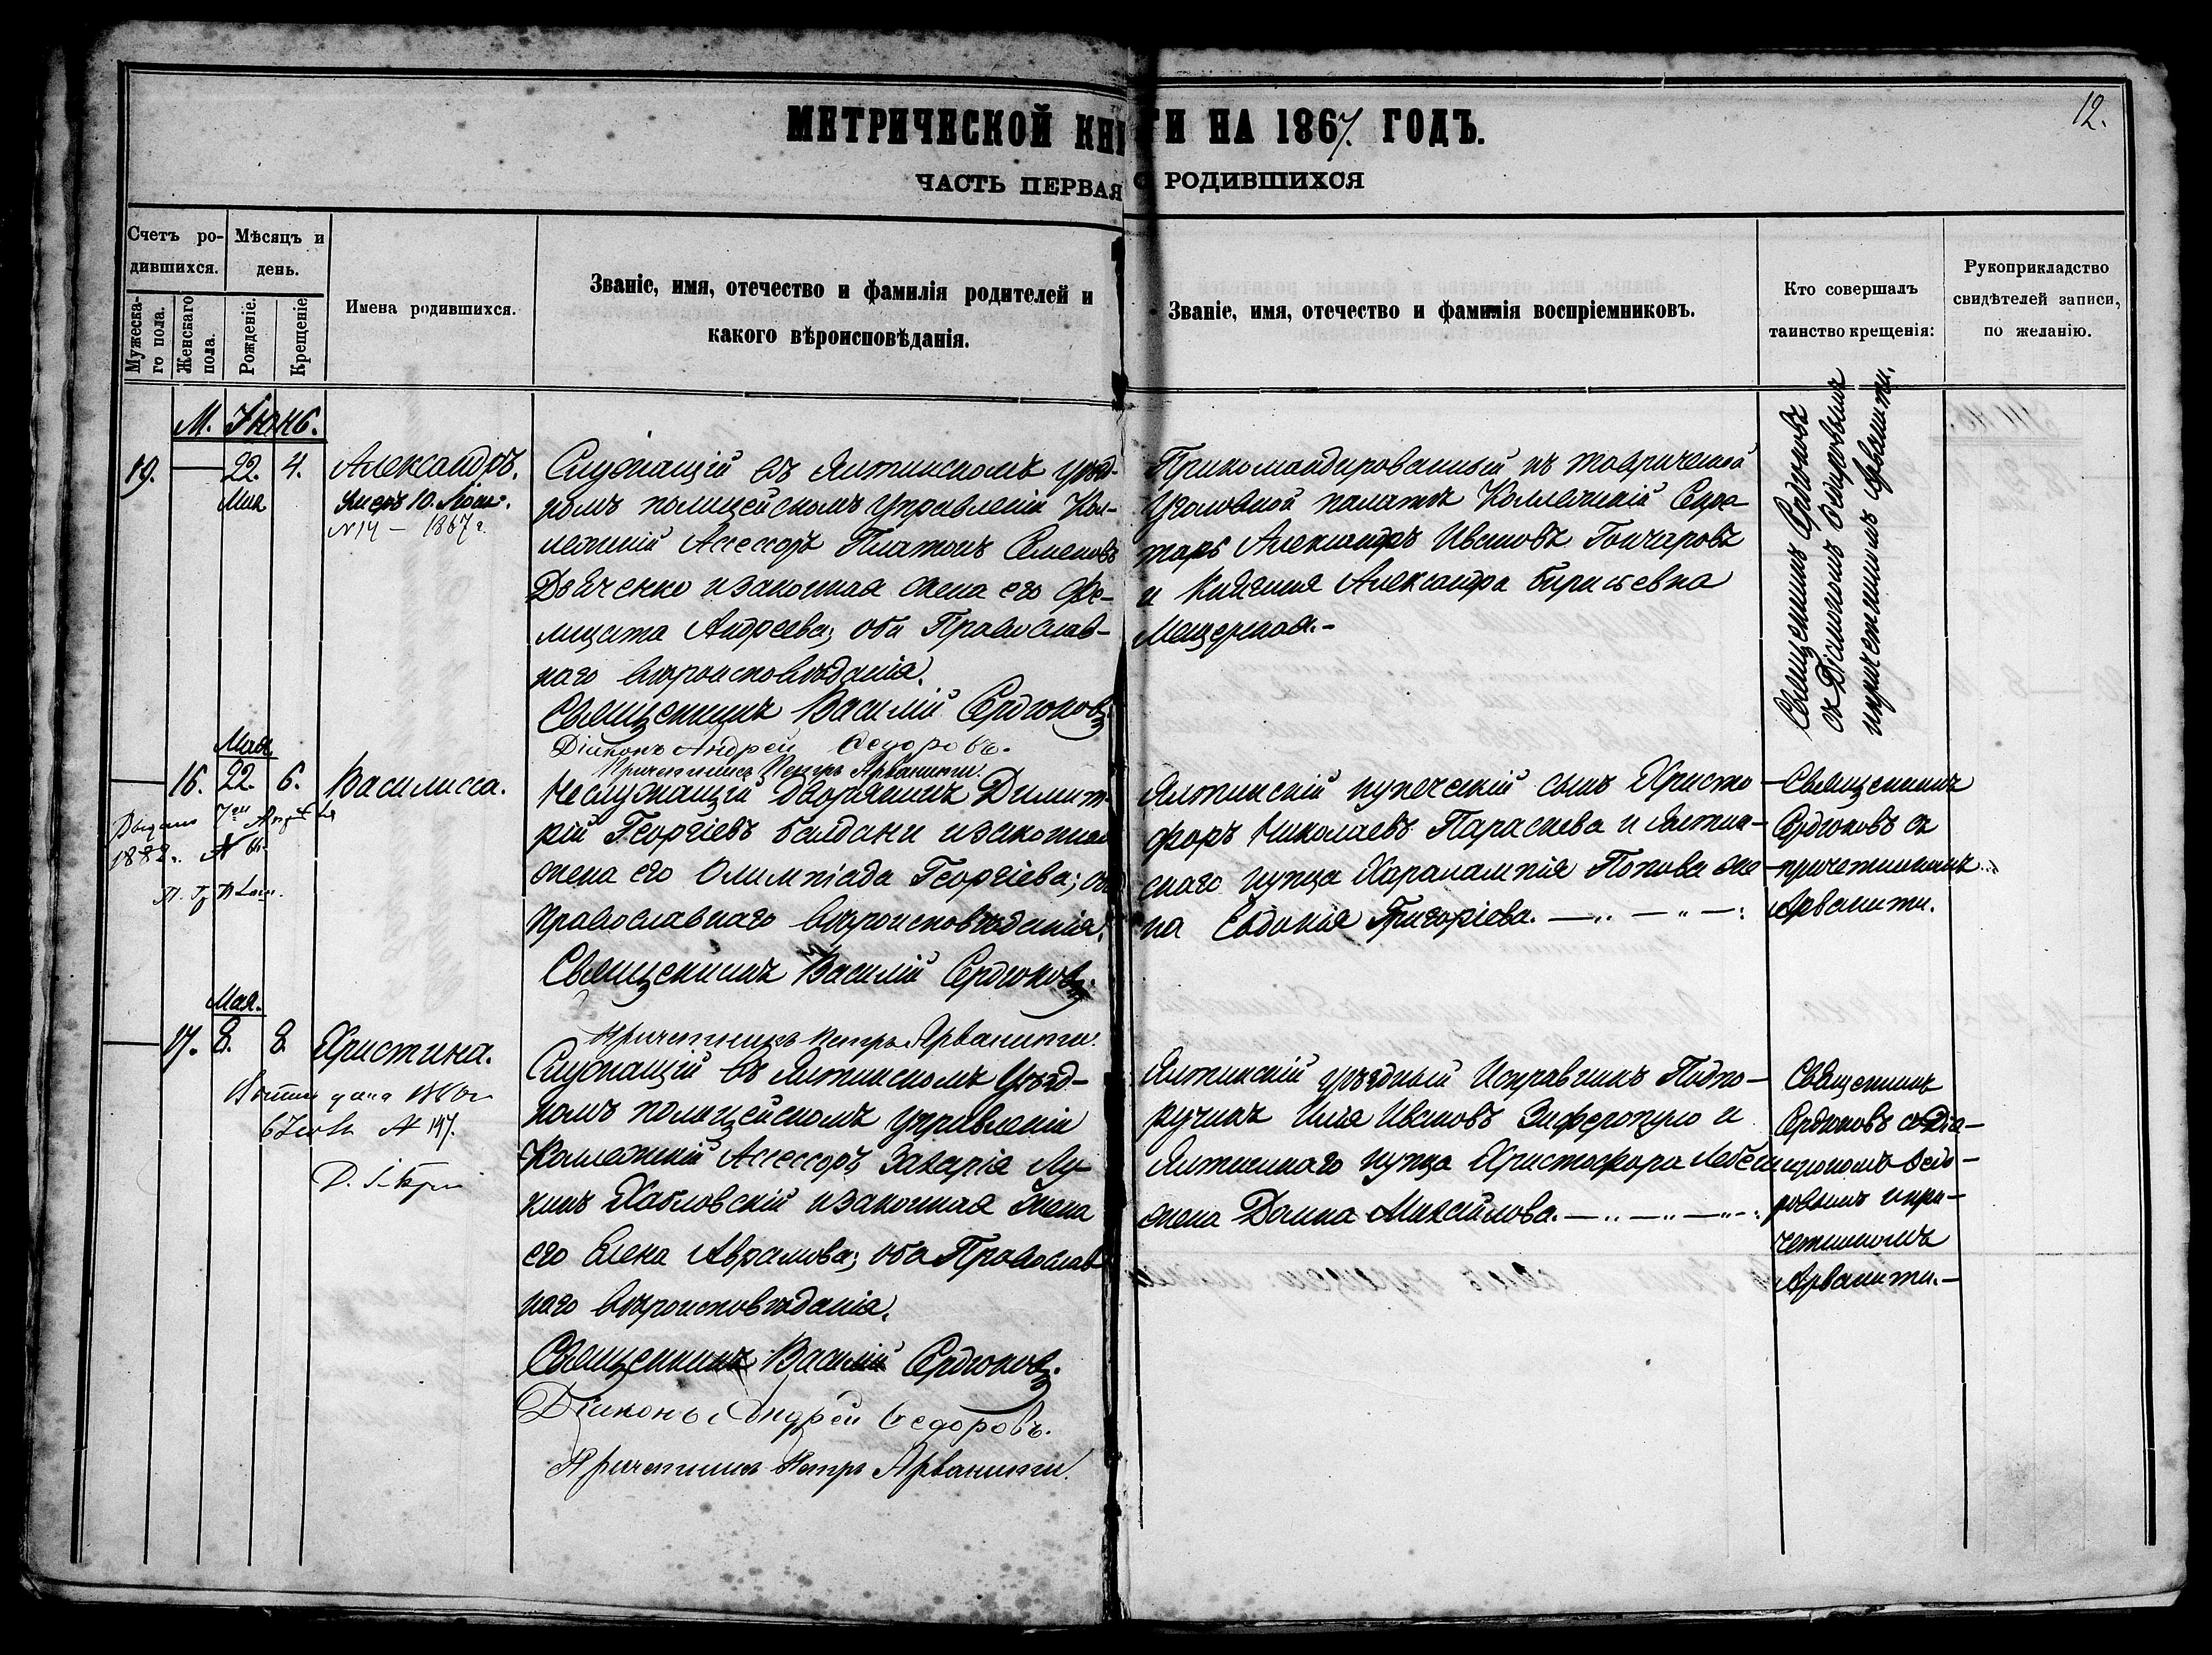 12.
МЕТРИЧЕСКОЙ КНИГИ НА 1867. ГОДЪ.
ЧАСТЬ ПЕРВАЯ О РОДИВШИХСЯ
Счетъ ро-
дившихся.
Мужеска-
го пола.
Женскаго
пола.
Мѣсяцъ и
день.
Рожденіе.
Крещеніе
Имена родившихся.
Званіе, имя, отечество и фамилія родителей и
какого вѣроисповѣданія.
Званіе, имя, отечество и фамилія воспріемниковъ.
Кто совершалъ
таинство крещенія:
Рукоприкладство
свидѣтелей записи,
по желанію.
М. Іюнь.
19. — 22. 4.
Мая
Александръ.
Умеръ 10. Іюня.
№ 14 — 1867 г.
Служащій въ Ялтинскомъ уѣзд-
номъ полицейскомъ Управленіи Кол-
лежскій Ассесоръ Платонъ Семеновъ
Дьяченко и законная жена его Фе-
лицата Андреева; оба Православ-
наго вѣроисповѣданія.
Священникъ Василій Сердюковъ.
Діаконъ Андрей Ѳедоровъ.
Причетникъ Петръ Арванити.
Прикомандированный къ таврической
Уголовной палатѣ Коллежскій Секре-
тарь Александръ Ивановъ Гончаровъ
и Княгиня Александра Борисьевна
Мещерская.-
Священникъ Сердюковъ
съ Діакономъ Ѳедоровымъ
и причетникомъ Арванити.
Мая
— 16. 22. 6. Василисса.
1882. №
Неслужащій дворянинъ Димит-
рій Георгіевъ Балдани и законная
жена его Олимпіада Георгіева; оба
православнаго вѣроисповѣданія.
Священникъ Василій Сердюковъ.
Причетникъ Петръ Арванити.
Ялтинскій купеческій сынъ Христо-
форъ Николаевъ Параскева и Ялтин-
скаго купца Харалампія Попова же-
на Евдокія Григоріева.
Священникъ
Сердюковъ съ
причетникомъ
Арванити.
Мая.
— 17. 8. 8. Христина.
№ 147.
Служащій въ Ялтинскомъ Уѣзд-
номъ полицейскомъ управленіи
Коллежскій Ассессоръ Захарія Лу-
кинъ Хабловскій и законная жена
его Елена Аврамова; оба Православ-
наго вѣроисповѣданія.
Священникъ Василій Сердюковъ.
Діаконъ Андрей Ѳедоровъ.
Причетникъ Петръ Арванити.
Ялтинскій уѣздный Исправникъ Подпо-
ручикъ Илья Ивановъ Зиферопуло и
Ялтинскаго купца Христофора
жена Домна Михайлова.
Священникъ
Сердюковъ съ Діа-
кономъ Ѳедо-
ровымъ и при-
четникомъ
Арванити.-